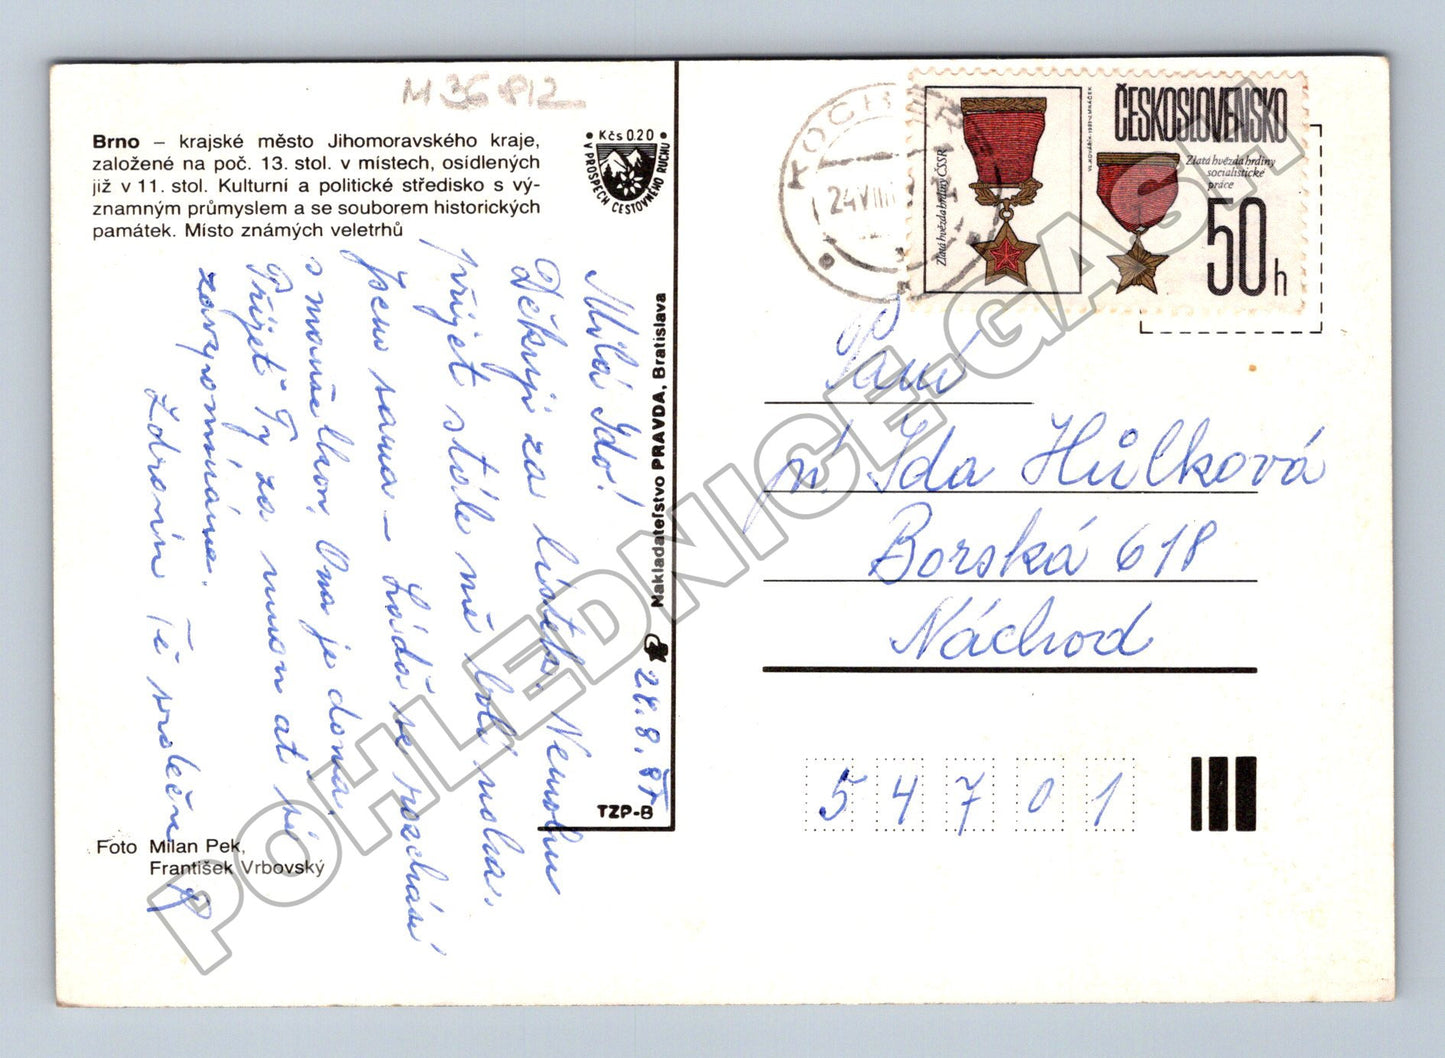 M 36 P12
Brno – krajské město Jihomoravského kraje,
založené na poč. 13. stol. v místech, osídlených
již v 11. stol. Kulturní a politické středisko s vý-
znamným průmyslem a se souborem historických
památek. Místo známých veletrhů
Kčs 0.20
V PROSPĚCH CESTOVNÉHO RUCHU
Milá Ido!
Děkuji za lístek. Nemohu
přijet stále mě bolí noha.
Jsem sama – Láďa se rozchází
s manželkou. Ona je doma.
Přijeť Ty za mnou ať si
zavzpomínáme.
Zdraví Tě srdečně
24.8.87
Nakladateľstvo PRAVDA, Bratislava
TZP-B
Foto Milan Pek,
František Vrbovský
24.VIII
ČESKOSLOVENSKO
Zlatá hvězda hrdiny ČSSR
Zlatá hvězda hrdiny
socialistické
práce
50h
Paní
p. Ida Hůlková
Borská 618
Náchod
54701
POHLEDNICE.GASH